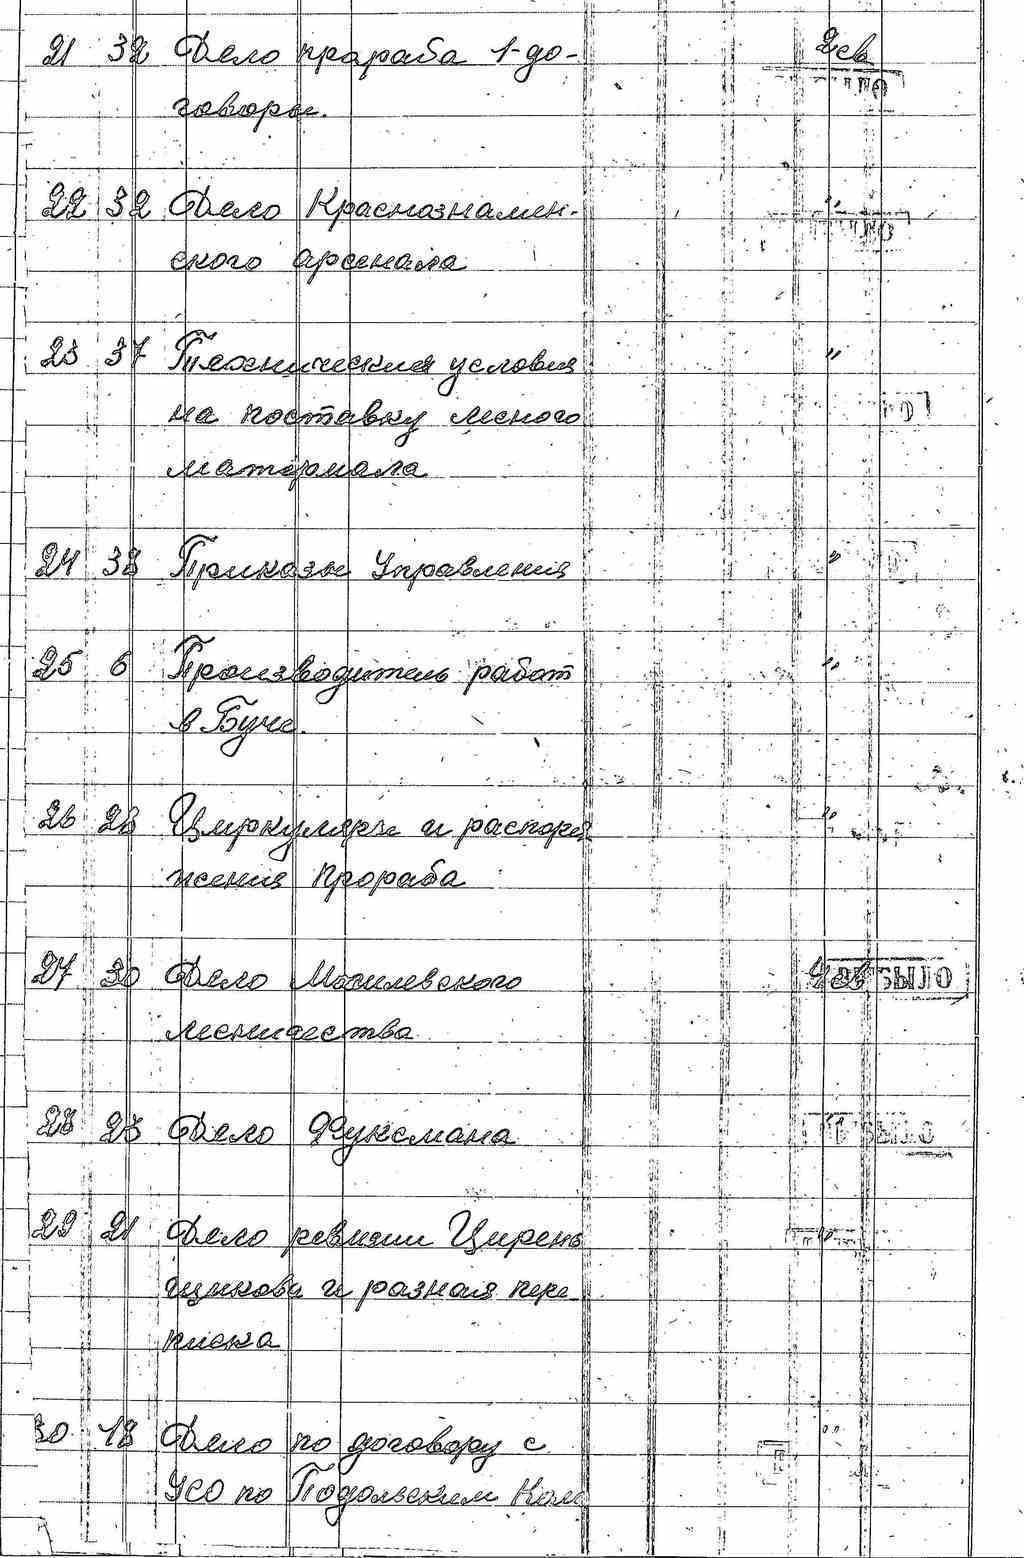 21 32 Дело прораба 1-до- 2 св
говоры.
22 32 Дело Краснознамен- "
ского арсенала
23 37 Технические условия "
на поставку лесного
материала
24 38 Приказы Управления "
25 6 Производитель работ "
в Буче.
26 28 Циркуляры и распоря "
жения Прораба
27 30 Дело Могилевского БЫЛО
лесничества
28 28 Дело Фуксмана БЫЛО
29 21 Дело ревизии Цирень "
щикова и разная пере-
писка
30 18 Дело по договору с "
УСО по Подольским Каз